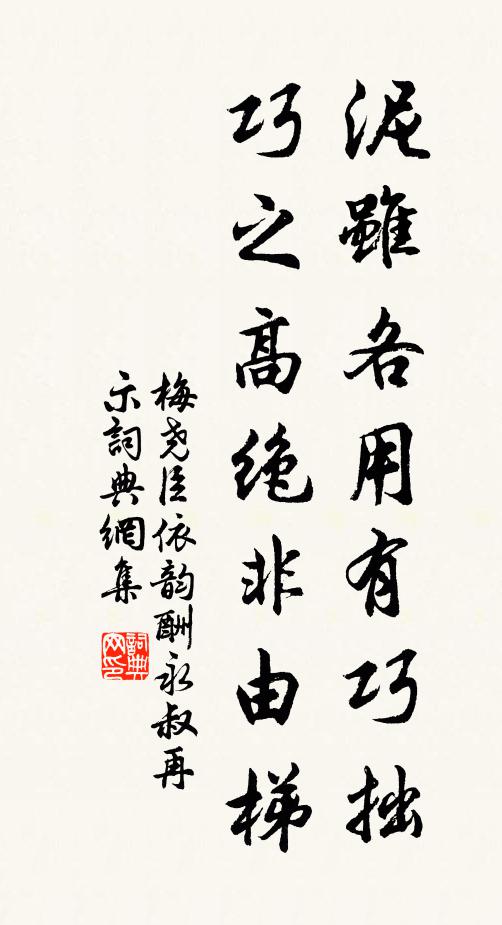 泥雖各用有巧拙
巧之高絶非由梯
梅堯臣依韵酬永叔再
示詞典網集
詞典网印